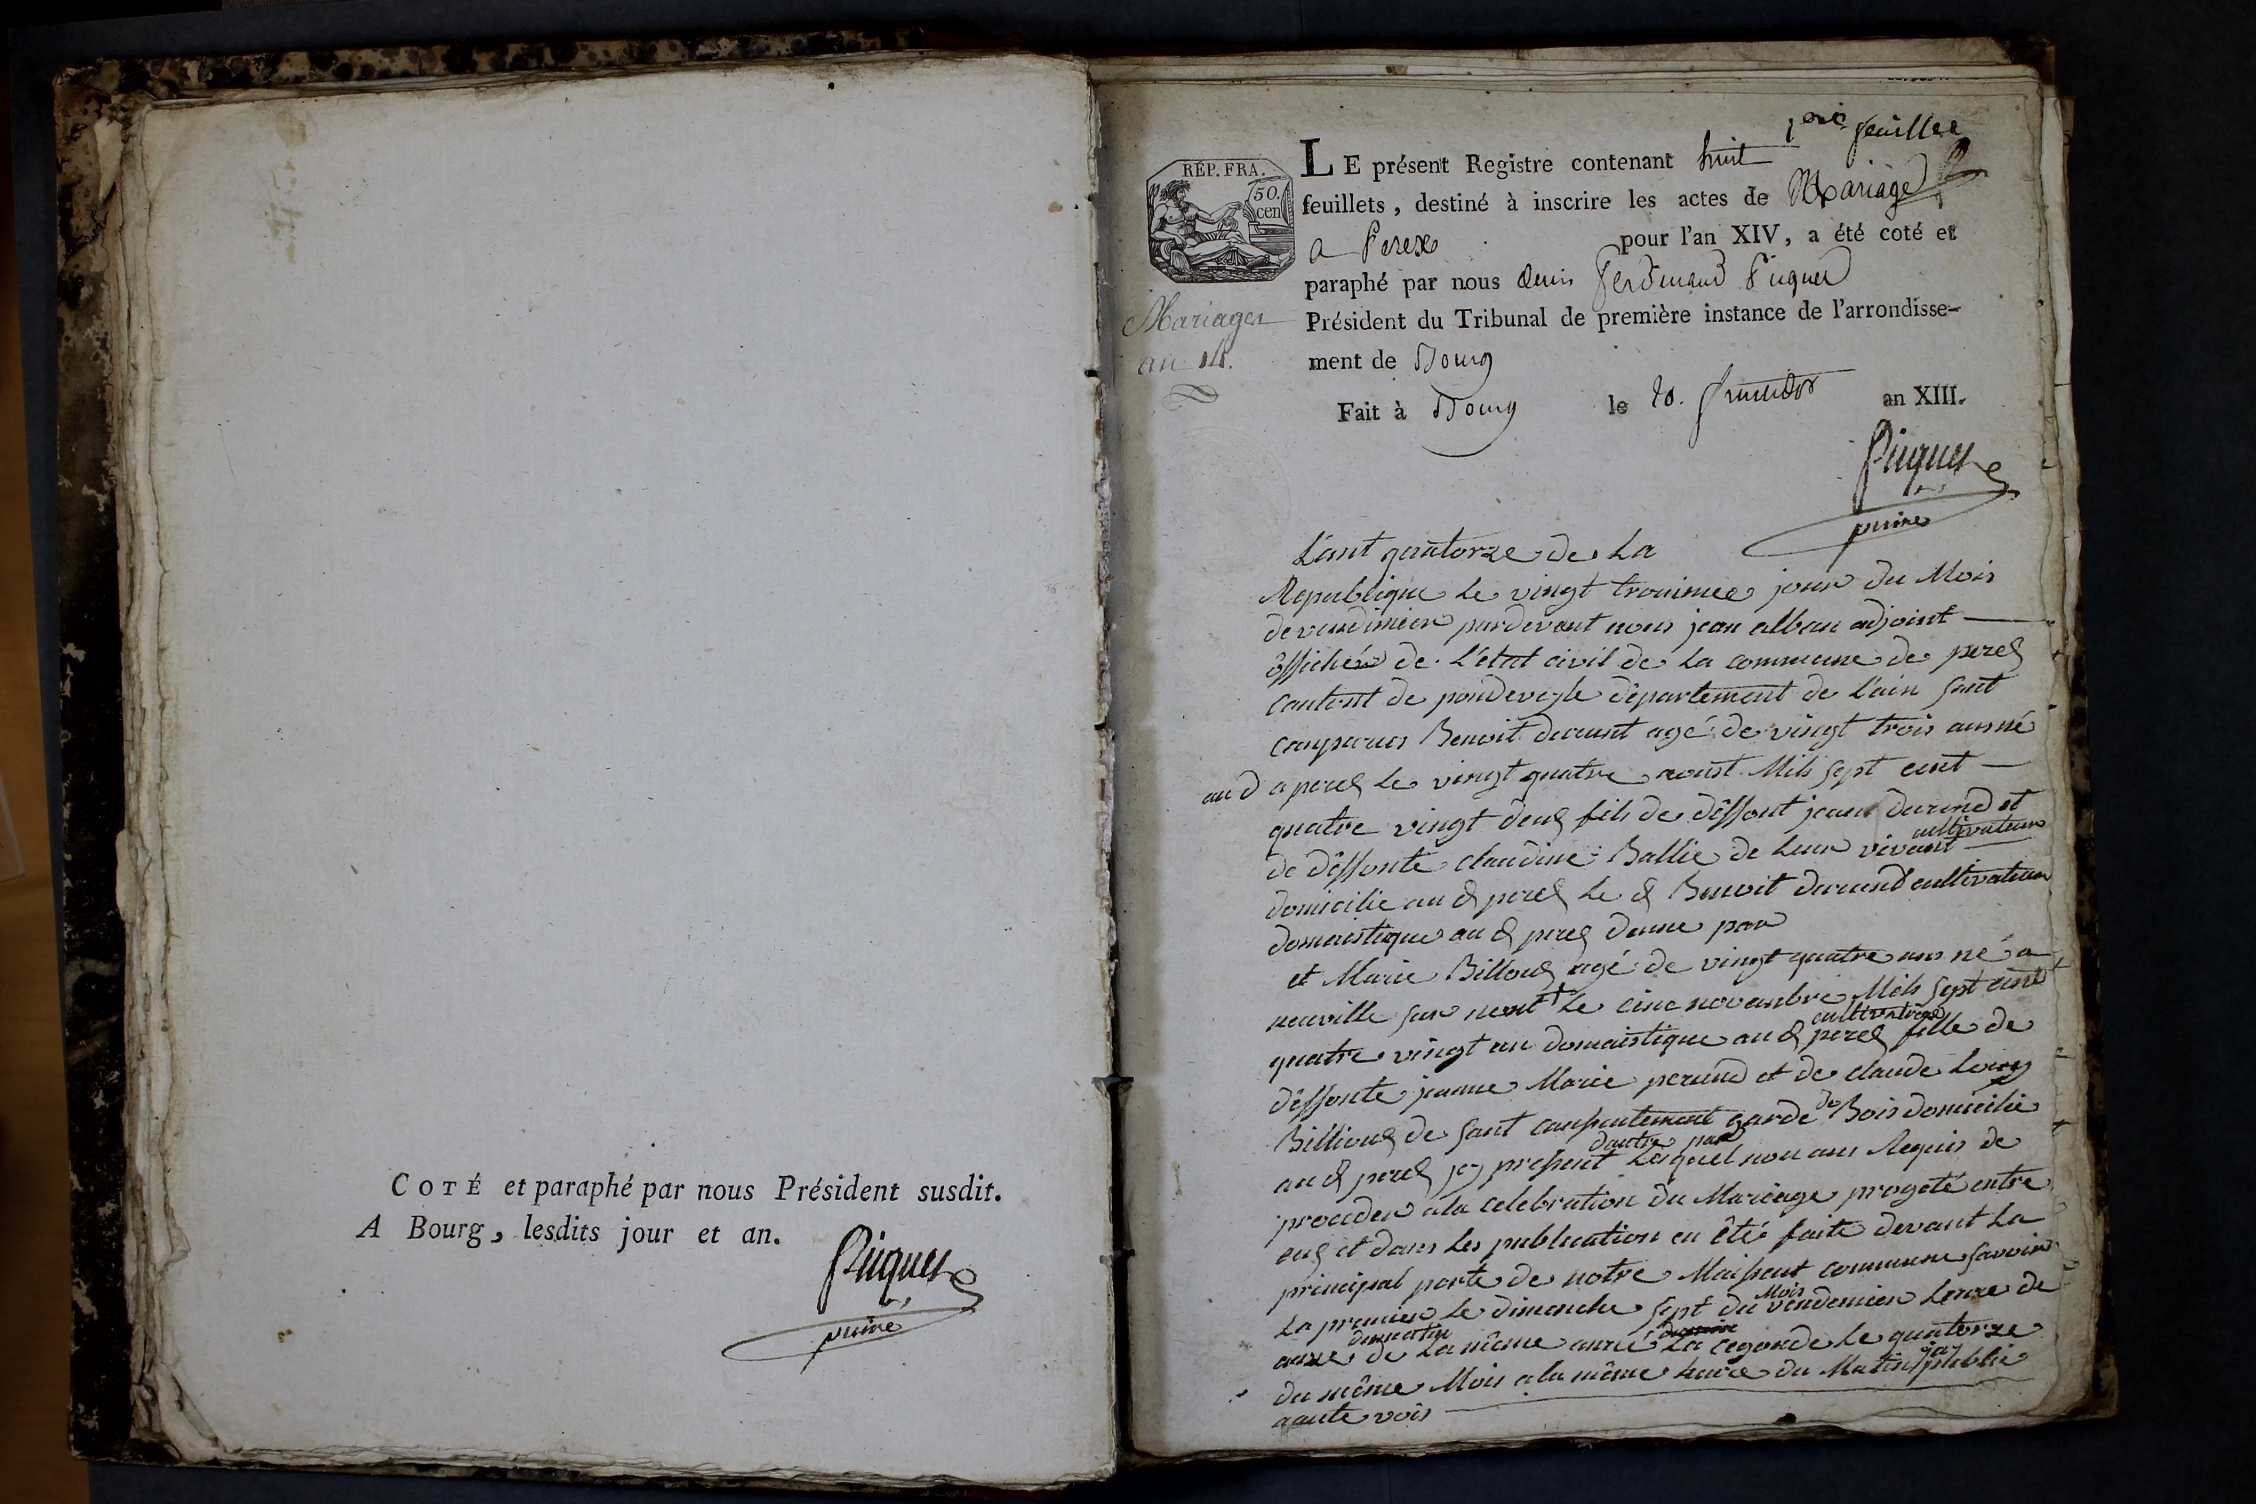 COTÉ et paraphé par nous Président susdit.
A Bourg, lesdits jour et an.
Picquet
1ere feuillee
RÉP. FRA.
50.
cen
LE présent Registre contenant huit
feuillets, destiné à inscrire les actes de Mariage
a Perex pour l'an XIV, a été coté et
paraphé par nous denis Ferdinand Picquet
Président du Tribunal de première instance de l'arrondisse-
ment de Bourg
Fait à Bourg le 20. fructidor an XIII.
Mariages
an 14.
Picquet
L'ant quatorze de La
Republique Le vingt trouimee jour du Mois
de vendimier pardevant nous jean alban adjoint
öffichér de L'etat civil de La commune de perex
cantont de pondeveyle département de L'ain sont
comparus Benoit durant agé de vingt trois ans né
aud a perex Le vingt quatre aoust Mils sept cent
quatre vingt deux fils de déffont jean durand et
de déffonte claudine Ballie de Leur vivant cultivateur
domicilie au d perex Le d Benoit durand cultivateur
domaistique au d perex dunne par
et Marie Billoux agé de vingt quatre ans né a
neuville sur rent Le cinc novembre Mils sept cent
quatre vingt un domaistique au d perex cultivatrice fille de
déffonte jeanne Marie perand et de claude Louis
Billioux de sont garde de Bois domicilie
au d perex jcy present dautre part Lesquel nous ans Requis de
proceder a la celebration du Mariage progeté entre
eux et dans Les publication en été faite devant La
principal porte de notre Maisont commune savoir
La premier Le dimanche sept du Mois vendemier Leure de
onze du matin de La même année La cegonde Le quatorze
du même Mois a la même heure du Matin publie
a aute vois